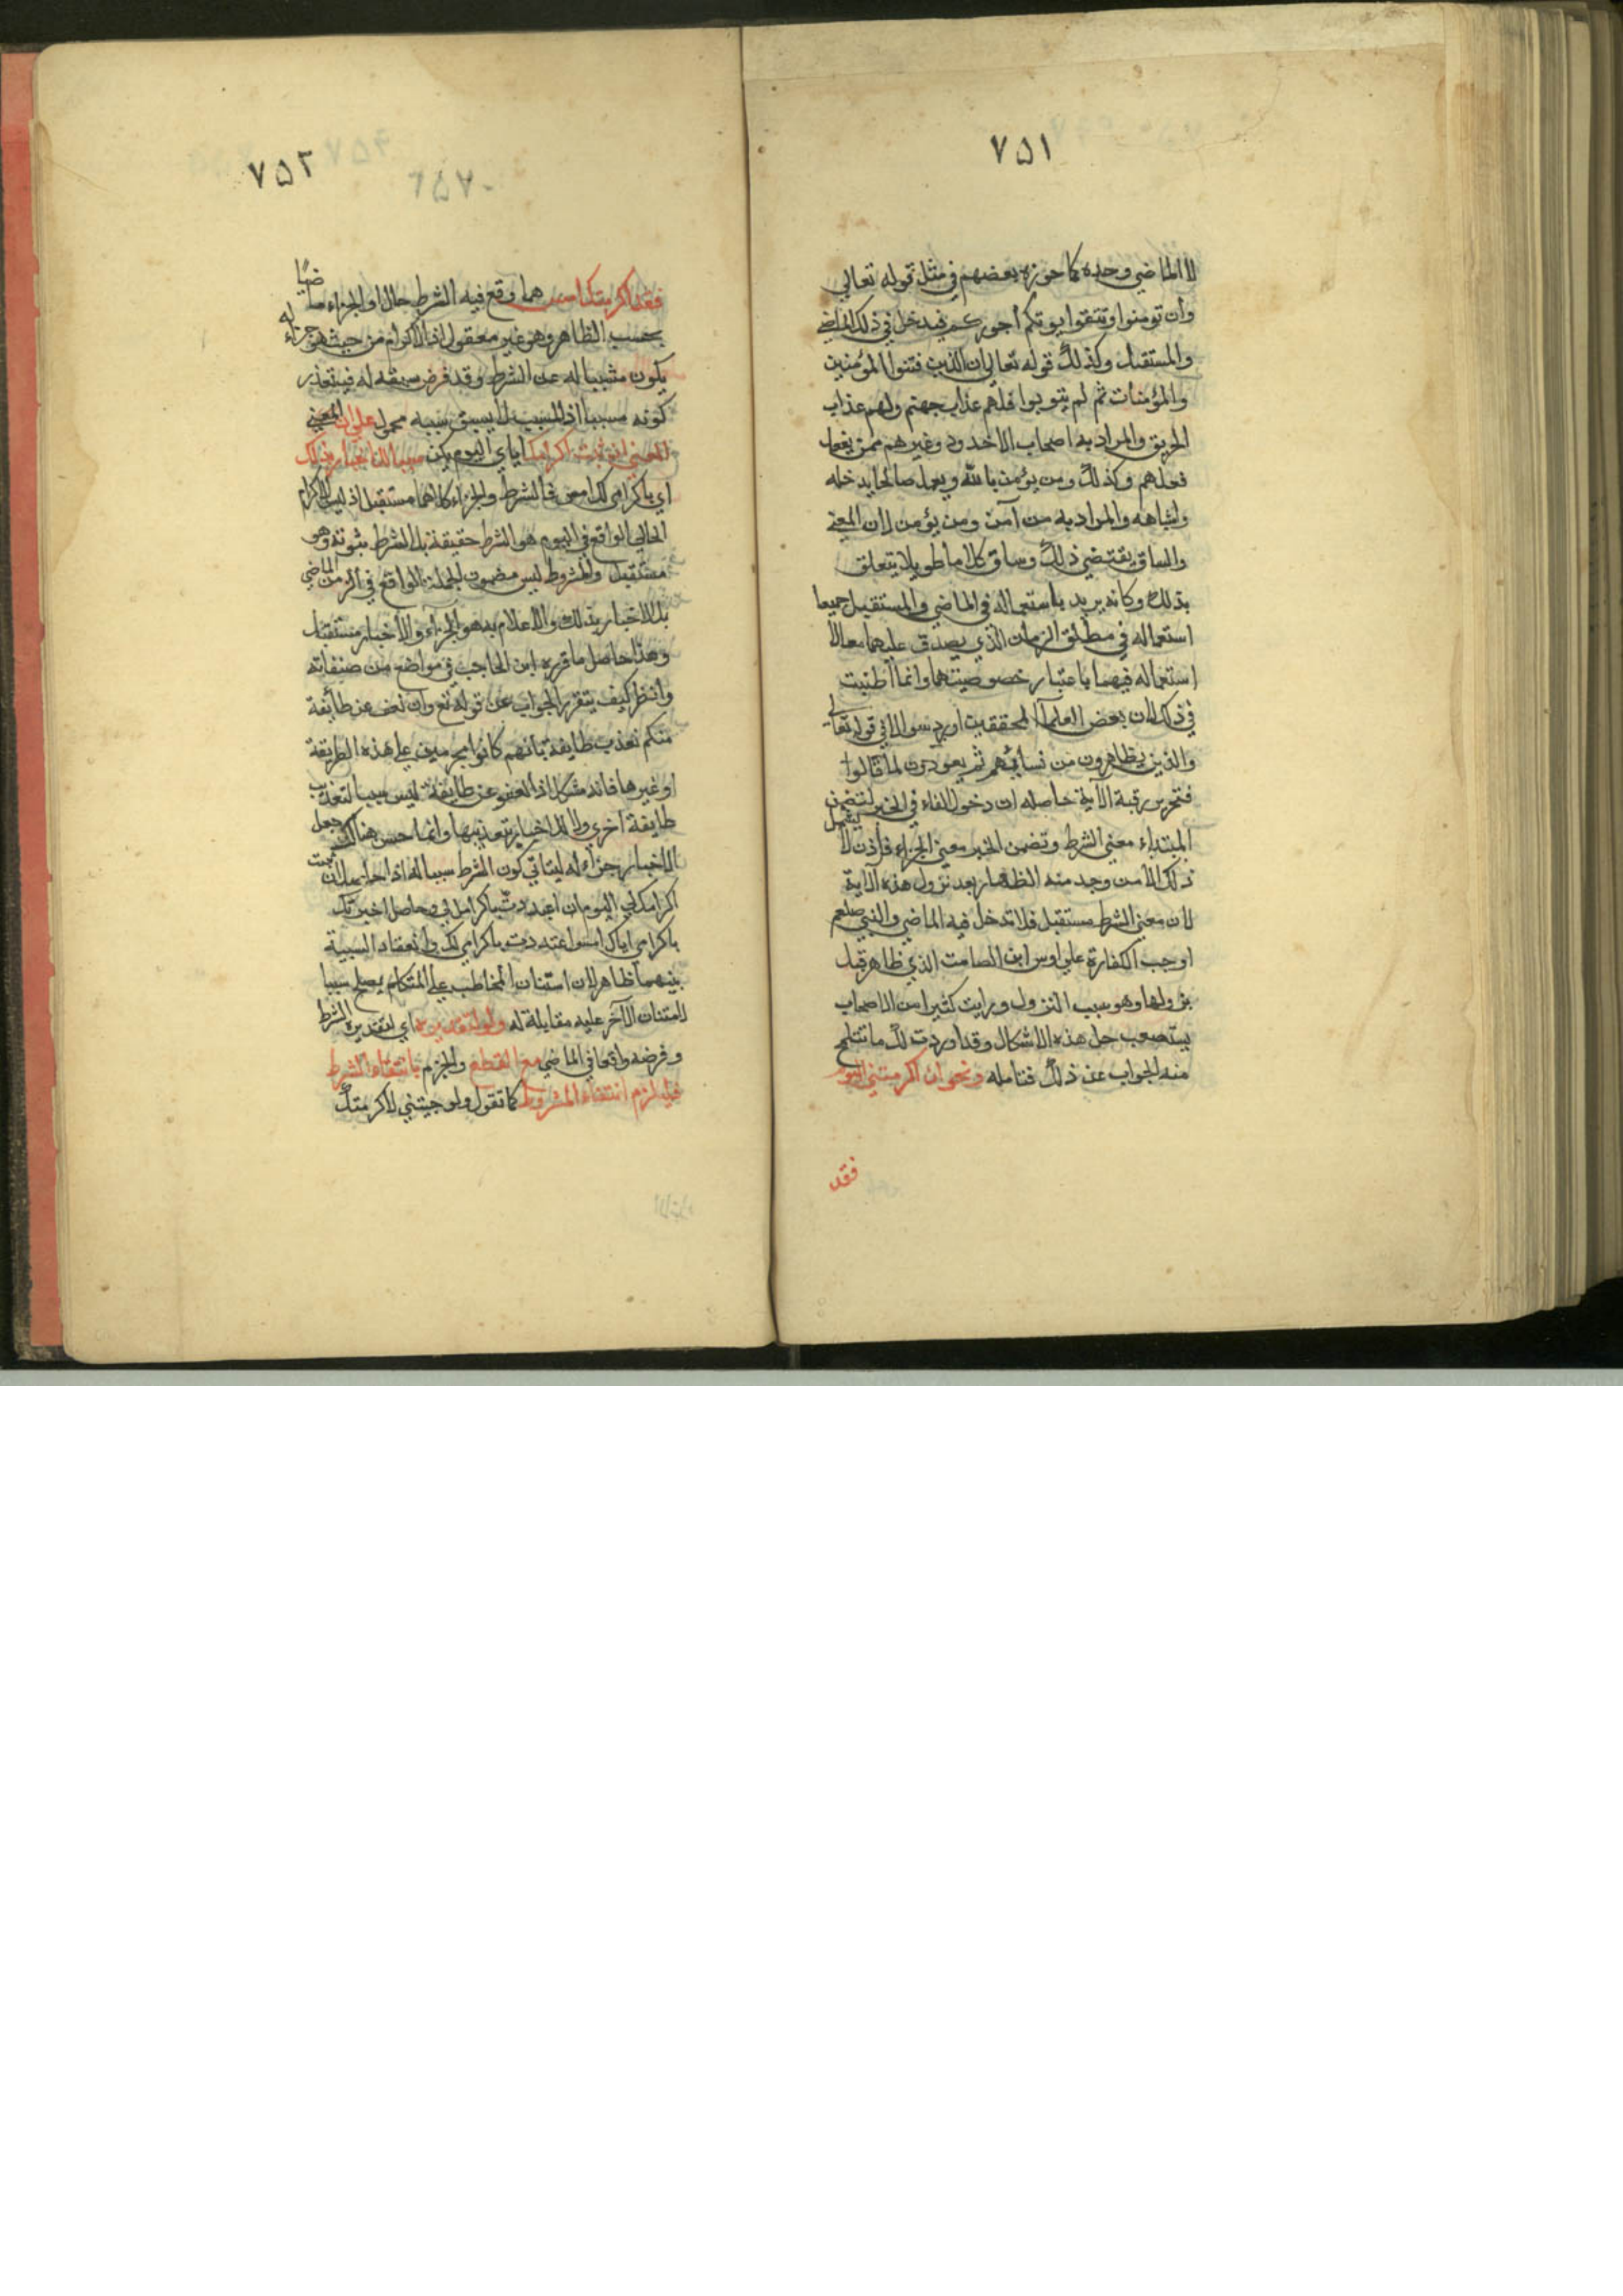 ٧۵١
لا الماضي وحده كما جوزه بعضهم في مثل قوله تعالي
وان تومنوا وتتقوا يوتكم أجوركم فيدخل في ذلك الماضي
والمستقبل وكذلك قوله تعالي ان الذين فتنوا المؤمنين
والمؤمنات ثم لم يتوبوا فلهم عذاب جهنم ولهم عذاب
الحريق والمراد به اصحاب الاخدود وغيرهم ممن يفعل
فعلهم وكذلك ومن يؤمن بالله ويعمل صالحا يدخله
واشباهه والمراد به من آمن ومن يؤمن لان المعني
والساق يقتضي ذلك وساق كلاما طويلا يتعلق
بذلك وكانه يريد باستعماله في الماضي والمستقبل جميعا
استعماله في مطلق الزمان الذي يصدق عليهما معا لا
استعماله فيهما باعتبار خصوصيتهما وانما أطنبت
في ذلك لان بعض العلماء المحققين اورد سوالا في قوله تعالي
والذين يظاهرون من نسائهم ثم يعودون لما قالوا
فتحرير رقبة الآية حاصله ان دخول الفاء في الخبر لتضمن
المبتداء معني الشرط وتضمن الخبر معني الجزاء فاذن لا يشمل
ذلك الا من وجد منه الظهار بعد نزول هذه الآية
لان معني الشرط مستقبل فلا تدخل فيه الماضي والنبي صلعم
اوجب الكفارة علي اوس ابن الصامت الذي ظاهر قبل
نزولها وهو سبب النزول ورايت كثيرا من الاصحاب
يستصعب حل هذه الاشكال وقد اوردت لك ما تتلمح
منه الجواب عن ذلك فتامله ونحو ان اكرمتني اليوم
فقد
٧۵٢
فقد اكرمتك امس مما وقع فيه الشرط حالا والجزاء ماضيا
بحسب الظاهر وهو غير معقول اذ الاكرام من حيث هو جزاء له
يكون مسببا له عن الشرط وقد فرض سبقه له فيتعذر
كونه مسببا اذ المسبب لا يسبق سببه محمول علي ان المعني
المعني ان ثبت اكرامك اياي اليوم يكن سببا للاخبار بذلك
اي باكرامي لك امس فالشرط والجزاء كلاهما مستقبل اذ ليس الاكرام
الحالي الواقع في اليوم هو الشرط حقيقة بل الشرط ثبوته وهو
مستقبل والمشروط ليس مضمون الجملة الواقع في الزمن الماضي
بل الاخبار بذلك والاعلام به هو الجزاء والأخبار مستقبل
وهذا حاصل ما قرره ابن الحاجب في مواضع من صنفاته
وانظر كيف يتقرر الجواب عن قوله تع وان نعف عن طايفة
منكم نعذب طايفة بانهم كانوا مجرمين علي هذه الطريقة
او غيرها فانه مشكل اذ العفو عن طايفة ليس سببا لتعذيب
طايفة اخري ولا للاخبار بتعذيبها وانما حسن هناك جعل
الاخبار جزاء له ليتاتي كون الشرط سببا له اذا حاصله ان ثبت
اكرامك لي اليوم ان اعتددت باكرامك لي وحاصل اخبرتك
باكرامي اياك امس اعتددت باكرامي لك وانعقاد السببية
بينهما ظاهر لان امتنان المخاطب علي المتكلم يصلح سببا
لامتنان الآخر عليه مقابلة له ولو لتقديره اي لتقدير الشرط
وفرضه واقعا في الماضي مع القطع والجزم بانتفاء الشرط
فيلزم انتفاء المشروط كما تقول ولو جيتني لاكرمتك